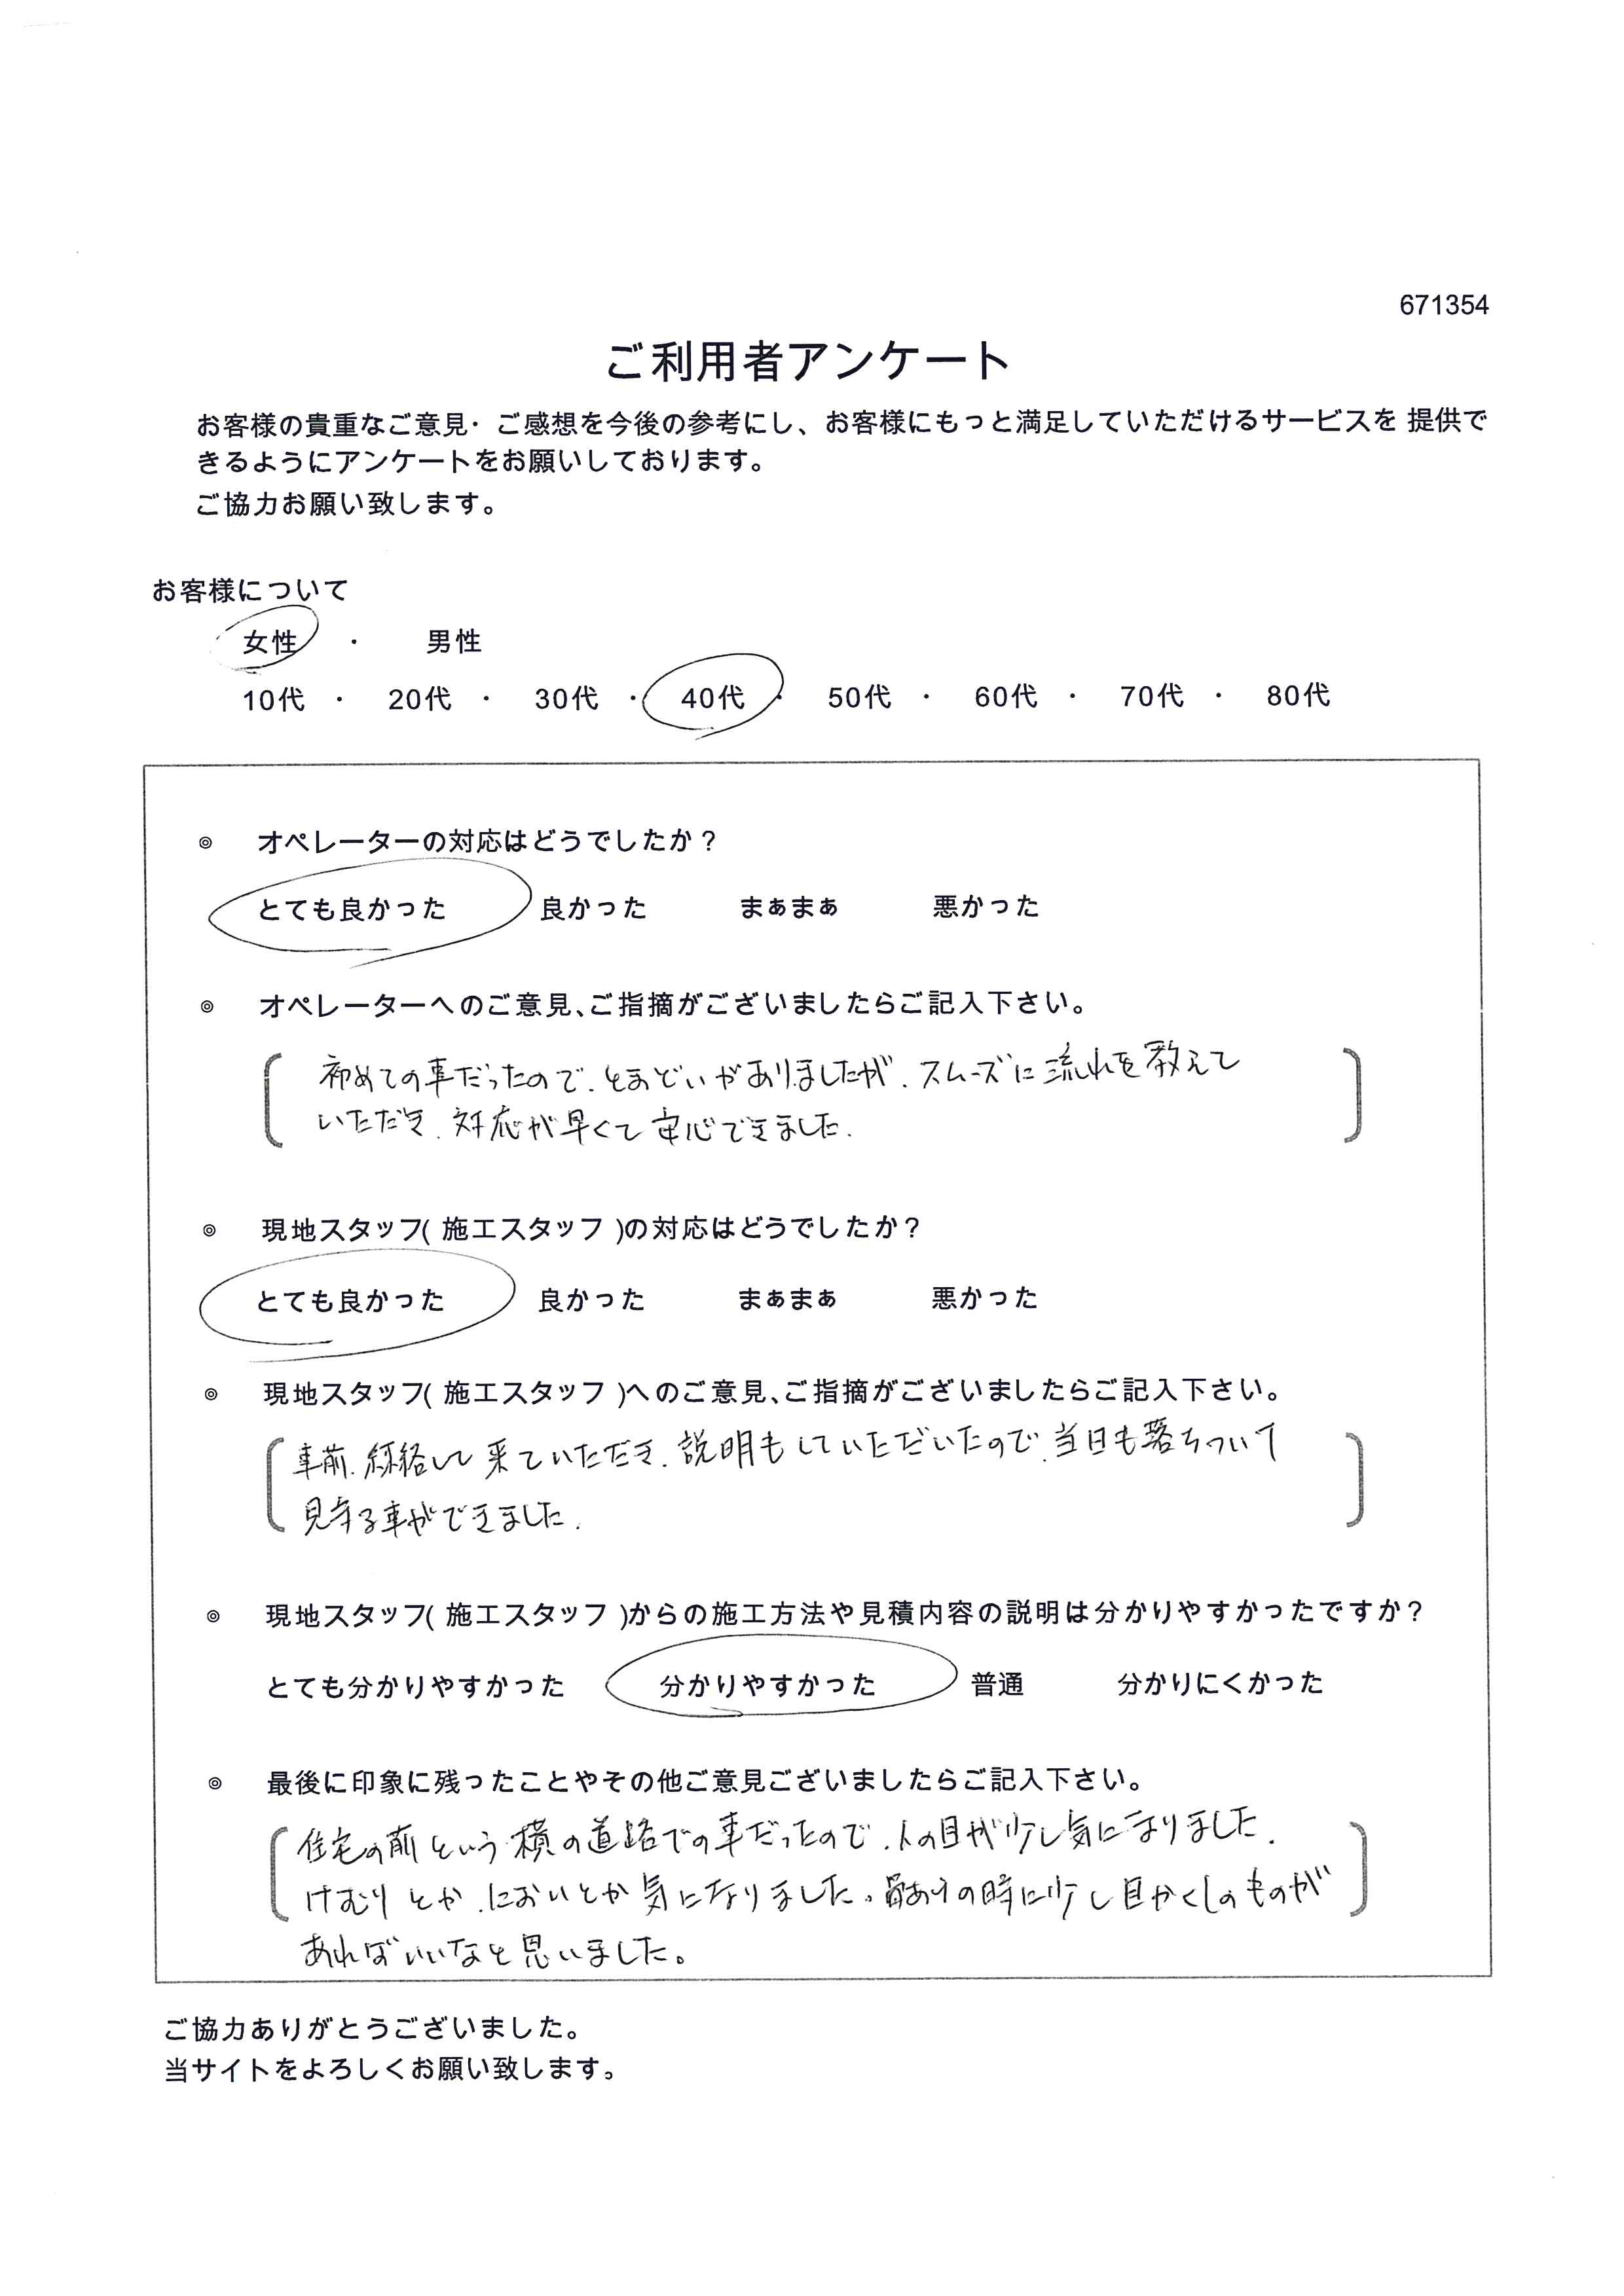 671354
ご利用者アンケート
お客様の貴重なご意見・ご感想を今後の参考にし、お客様にもっと満足していただけるサービスを 提供で
きるようにアンケートをお願いしております。
ご協力お願い致します。
お客様について
女性 ・ 男性
10代 ・ 20代 ・ 30代 ・ 40代 ・ 50代 ・ 60代 ・ 70代 ・ 80代
◎ オペレーターの対応はどうでしたか？
とても良かった 良かった まぁまぁ 悪かった
◎ オペレーターへのご意見、ご指摘がございましたらご記入下さい。
初めての事だったので、とまどいがありましたが、スムーズに流れを教えて
いただき、対応が早くて安心できました.
◎ 現地スタッフ( 施工スタッフ )の対応はどうでしたか？
とても良かった 良かった まぁまぁ 悪かった
◎ 現地スタッフ( 施工スタッフ )へのご意見、ご指摘がございましたらご記入下さい。
事前、連絡して来ていただき、説明もしていただいたので、当日も落ちついて
見守る事ができました.
◎ 現地スタッフ( 施工スタッフ )からの施工方法や見積内容の説明は分かりやすかったですか？
とても分かりやすかった 分かりやすかった 普通 分かりにくかった
◎ 最後に印象に残ったことやその他ご意見ございましたらご記入下さい。
住宅の前という横の道路での事だったので、人の目が少し気になりました.
けむりとか、においとか気になりました。の時に少し目かくしのものが
あればいいなと思いました。
ご協力ありがとうございました。
当サイトをよろしくお願い致します。